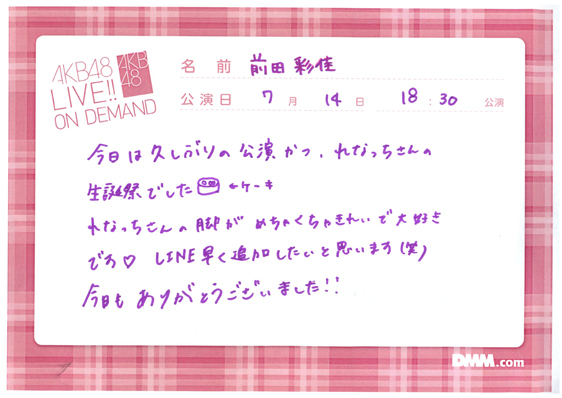 AKB48
LIVE!!
ON DEMAND
AKB
48
名 前 前田 彩佳
公演日 7 月 14 日 18 : 30 公演
今日は久しぶりの公演かつ、れなっちさんの
生誕祭でした ←ケーキ
れなっちさんの脚が めちゃくちゃきれいで大好き
です♡ LINE早く追加したいと思います(笑)
今日も ありがとうございました!!
DMM.com